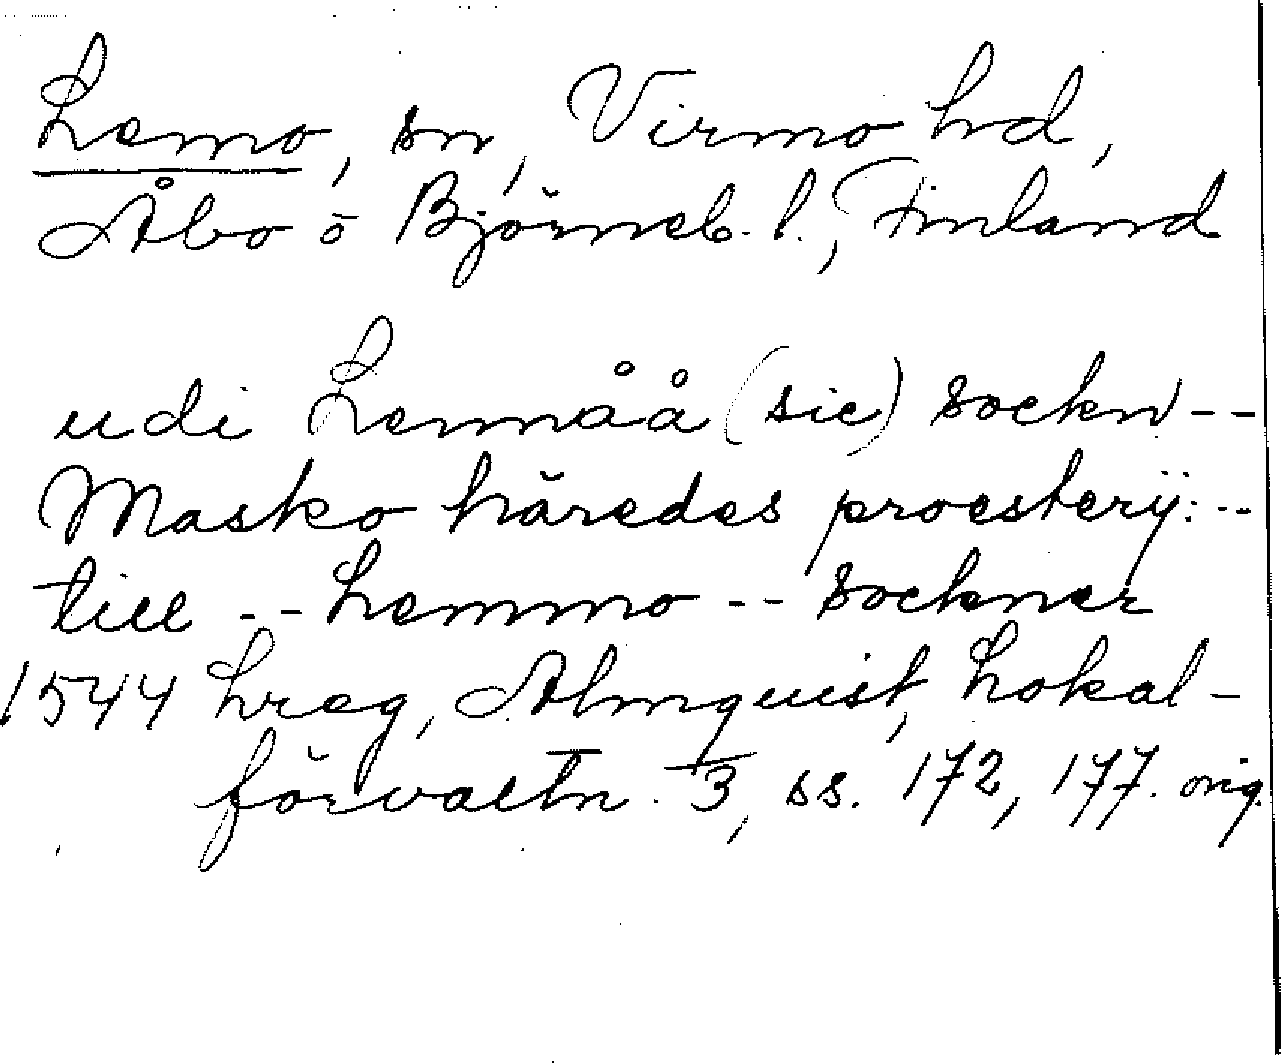 Lemo, sn, Virmo hd,
Åbo o Björneb. l., Finland
udi Lemåå (sic) sockn --
Masko häredes proesterij: --
till -- Lemmo -- sockner
1544 Lreg, Almquist, Lokal-
förvaltn. 3, ss. 172, 177. orig.